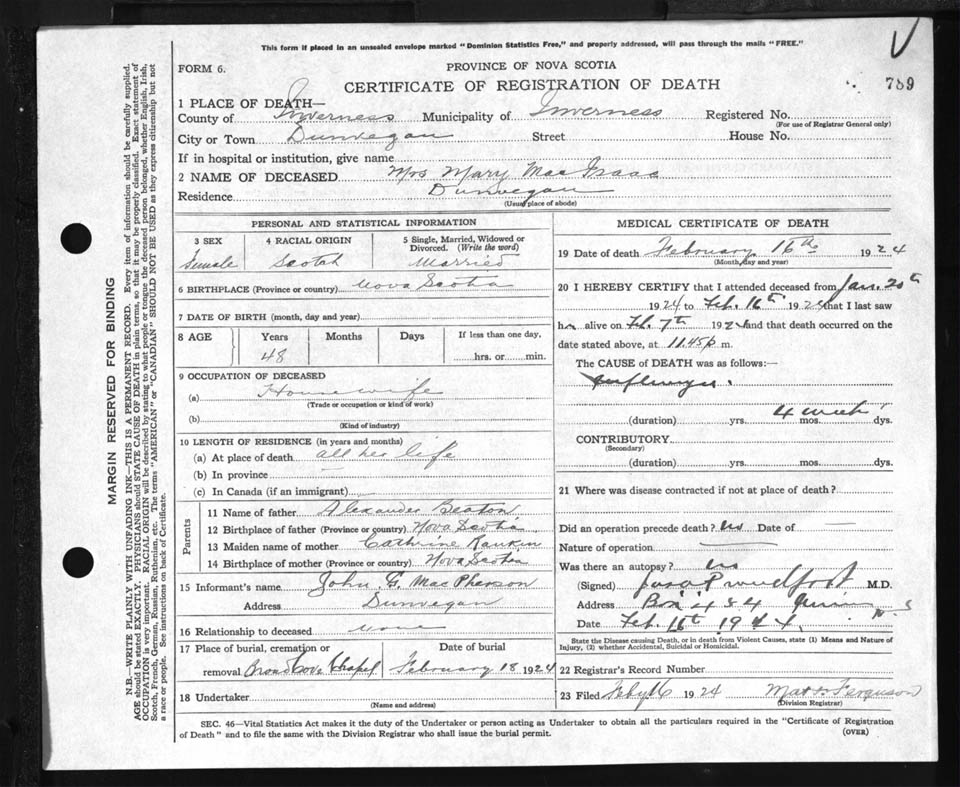 This form if placed in an unsealed envelope marked "Dominion Statistics Free," and properly addressed, will pass through the mails "FREE."
FORM 6.
PROVINCE OF NOVA SCOTIA
CERTIFICATE OF REGISTRATION OF DEATH
789
1 PLACE OF DEATH—
County of Inverness Municipality of Inverness Registered No.
(For use of Registrar General only)
City or Town Dunvegan Street House No.
If in hospital or institution, give name
2 NAME OF DECEASED Mrs Mary Mac Isaac
Residence Dunvegan
(Usual place of abode)
PERSONAL AND STATISTICAL INFORMATION
3 SEX 4 RACIAL ORIGIN 5 Single, Married, Widowed or Divorced. (Write the word)
Female Scotch Married
6 BIRTHPLACE (Province or country) Nova Scotia
7 DATE OF BIRTH (month, day and year)
8 AGE Years Months Days If less than one day,
48 hrs. or min.
9 OCCUPATION OF DECEASED
(a) Housewife
(Trade or occupation or kind of work)
(b)
(Kind of industry)
10 LENGTH OF RESIDENCE (in years and months)
(a) At place of death all her life
(b) In province
(c) In Canada (if an immigrant)
Parents
11 Name of father Alexander Beaton
12 Birthplace of father (Province or country) Nova Scotia
13 Maiden name of mother Cathrine Rankin
14 Birthplace of mother (Province or country) Nova Scotia
15 Informant's name John G. Mac Pherson
Address Dunvegan
16 Relationship to deceased none
17 Place of burial, cremation or removal Broad Cove Chapel Date of burial February 18 1924
18 Undertaker
(Name and address)
MEDICAL CERTIFICATE OF DEATH
19 Date of death February 16th 1924
(Month, day and year)
20 I HEREBY CERTIFY that I attended deceased from Jan. 20th
1924 to Feb. 16th 1924 that I last saw
h alive on Feb. 7th 192 and that death occurred on
date stated above, at 11.45 p m.
The CAUSE of DEATH was as follows:—
Influenza.
(duration) yrs. 4 weeks mos. dys.
CONTRIBUTORY
(Secondary)
(duration) yrs. mos. dys.
21 Where was disease contracted if not at place of death?
Did an operation precede death? no Date of
Nature of operation
Was there an autopsy? no
(Signed) Proudfoot M.D.
Address Box 434 N S
Date Feb. 16th 1924.
State the Disease causing Death, or in death from Violent Causes, state (1) Means and Nature of Injury, (2) whether Accidental, Suicidal or Homicidal.
22 Registrar's Record Number
23 Filed Feby 16 1924 Ferguson
(Division Registrar)
SEC. 46—Vital Statistics Act makes it the duty of the Undertaker or person acting as Undertaker to obtain all the particulars required in the "Certificate of Registration
of Death" and to file the same with the Division Registrar who shall issue the burial permit.
(OVER)
MARGIN RESERVED FOR BINDING
N.B.—WRITE PLAINLY WITH UNFADING INK—THIS IS A PERMANENT RECORD. Every item of information should be carefully supplied.
AGE should be stated EXACTLY. PHYSICIANS should STATE CAUSE OF DEATH in plain terms, so that it may be properly classified. Exact statement of
OCCUPATION is very important. RACIAL ORIGIN will be described by stating to what people or tongue the deceased person belonged, whether English, Irish,
Scotch, French, German, Russian, Ruthenian, etc. The terms "AMERICAN" or "CANADIAN" SHOULD NOT BE USED as they express citizenship but not
a race or people. See instructions on back of Certificate.